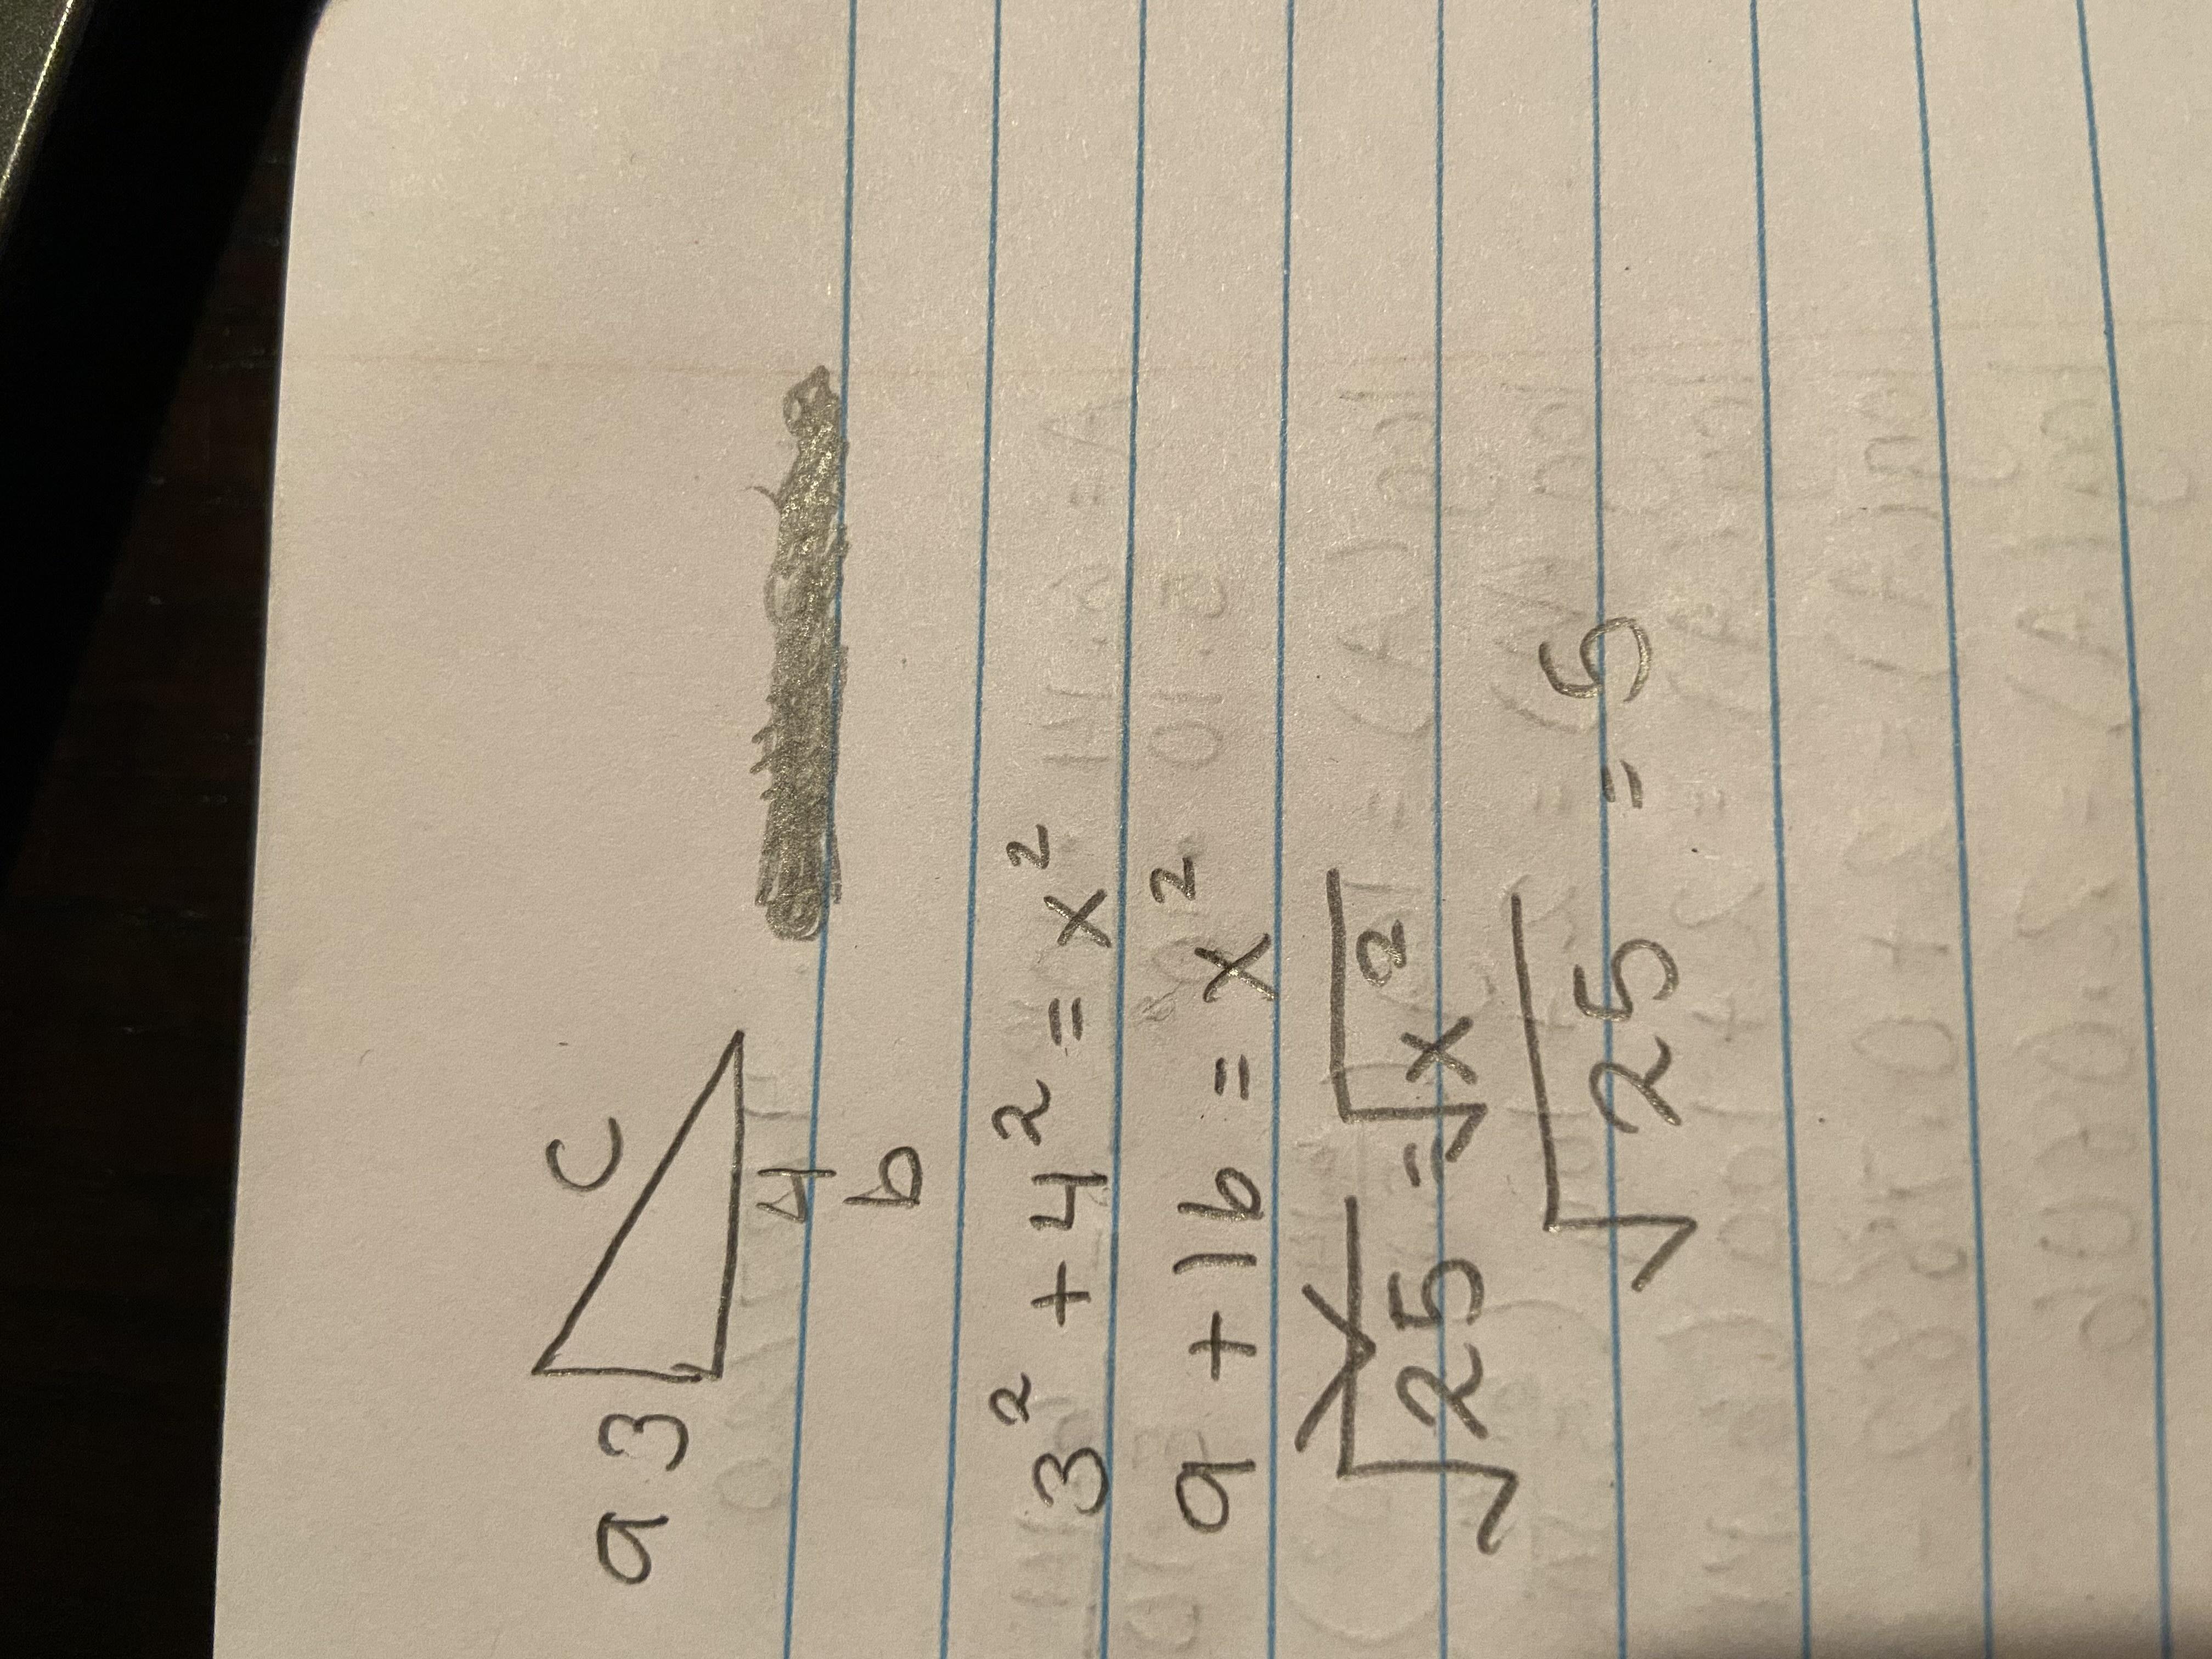 c
a 3
4
b
3² + 4² = x²
9 + 16 = x²
√25 = √x²
√25 = 5